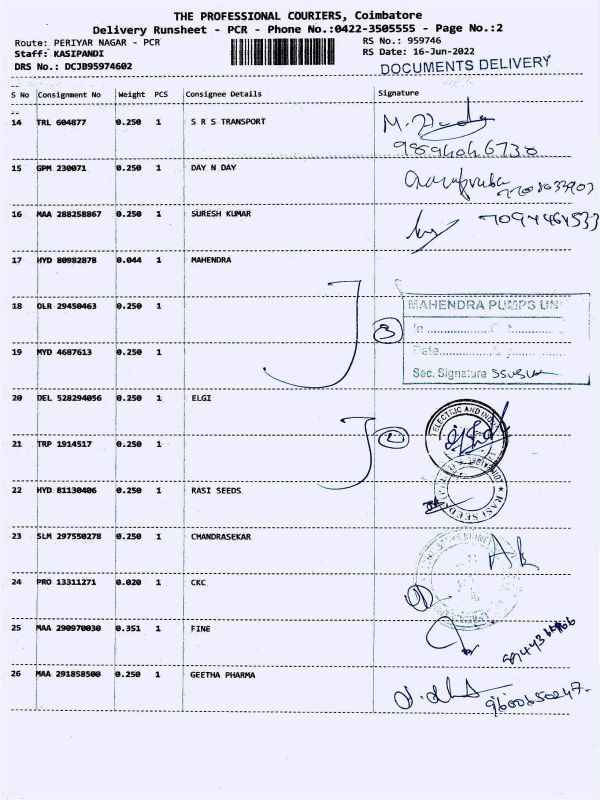 THE PROFESSIONAL COURIERS, Coimbatore
Delivery Runsheet - PCR - Phone No.:0422-3505555 - Page No.:2
Route: PERIYAR NAGAR - PCR
RS No.: 959746
Staff: KASIPANDI
RS Date: 16-Jun-2022
DRS No.: DCJB95974602
DOCUMENTS DELIVERY
S No Consignment No Weight PCS Consignee Details Signature
14 TRL 604877 0.250 1 S R S TRANSPORT
15 GPM 230071 0.250 1 DAY N DAY
16 MAA 288258867 0.250 1 SURESH KUMAR
17 HYD 80982878 0.044 1 MAHENDRA
18 DLR 29450463 0.250 1
MAHENDRA PUMPS UNI
In
3
19 MYD 4687613 0.250 1
Date
Sec. Signature
20 DEL 528294056 0.250 1 ELGI
ELECTRIC AND
21 TRP 1914517 0.250 1
22 HYD 81130406 0.250 1 RASI SEEDS
RASI SEEDS
23 SLM 297550278 0.250 1 CHANDRASEKAR
24 PRO 13311271 0.020 1 CKC
25 MAA 290970030 0.351 1 FINE
26 MAA 291858500 0.250 1 GEETHA PHARMA
9600650247.